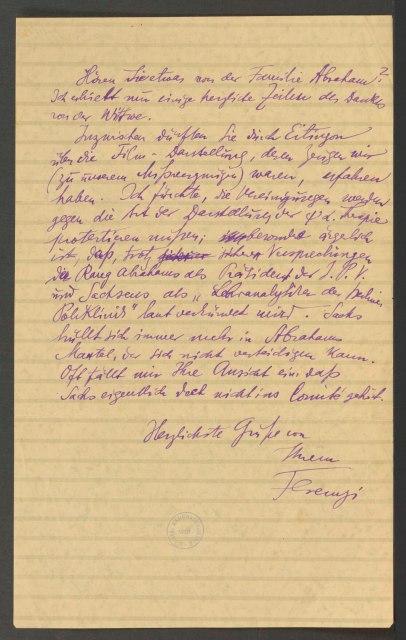 Hören Sie etwas von der Familie Abraham?
Ich erhielt nur einige herzliche Zeilen des Dankes
von der Witwe.
Inzwischen dürften Sie durch Eitingon
über die Film-Darstellung, deren Zeugen wir
(zu unserem Missvergnügen) waren, erfahren
haben. Ich fürchte, die Vereinigungen werden
gegen die Art der Darstellung der ψα. Therapie
protestieren müssen; besonders ärgerlich
ist, daß, trotz Versprechungen
der Rang Abrahams als Präsident der I.P.V.
und Sachsens, als „Lehranalytiker der Berliner
Poliklinik" laut verkündet wird. Sachs
hüllt sich immer mehr in Abrahams
Mantel, der sich nicht verteidigen kann.
Oft fällt mir Ihre Ansicht ein, daß
Sachs eigentlich doch nicht ins Comité gehört.
Herzlichste Grüße von
Ihrem
Ferenczi